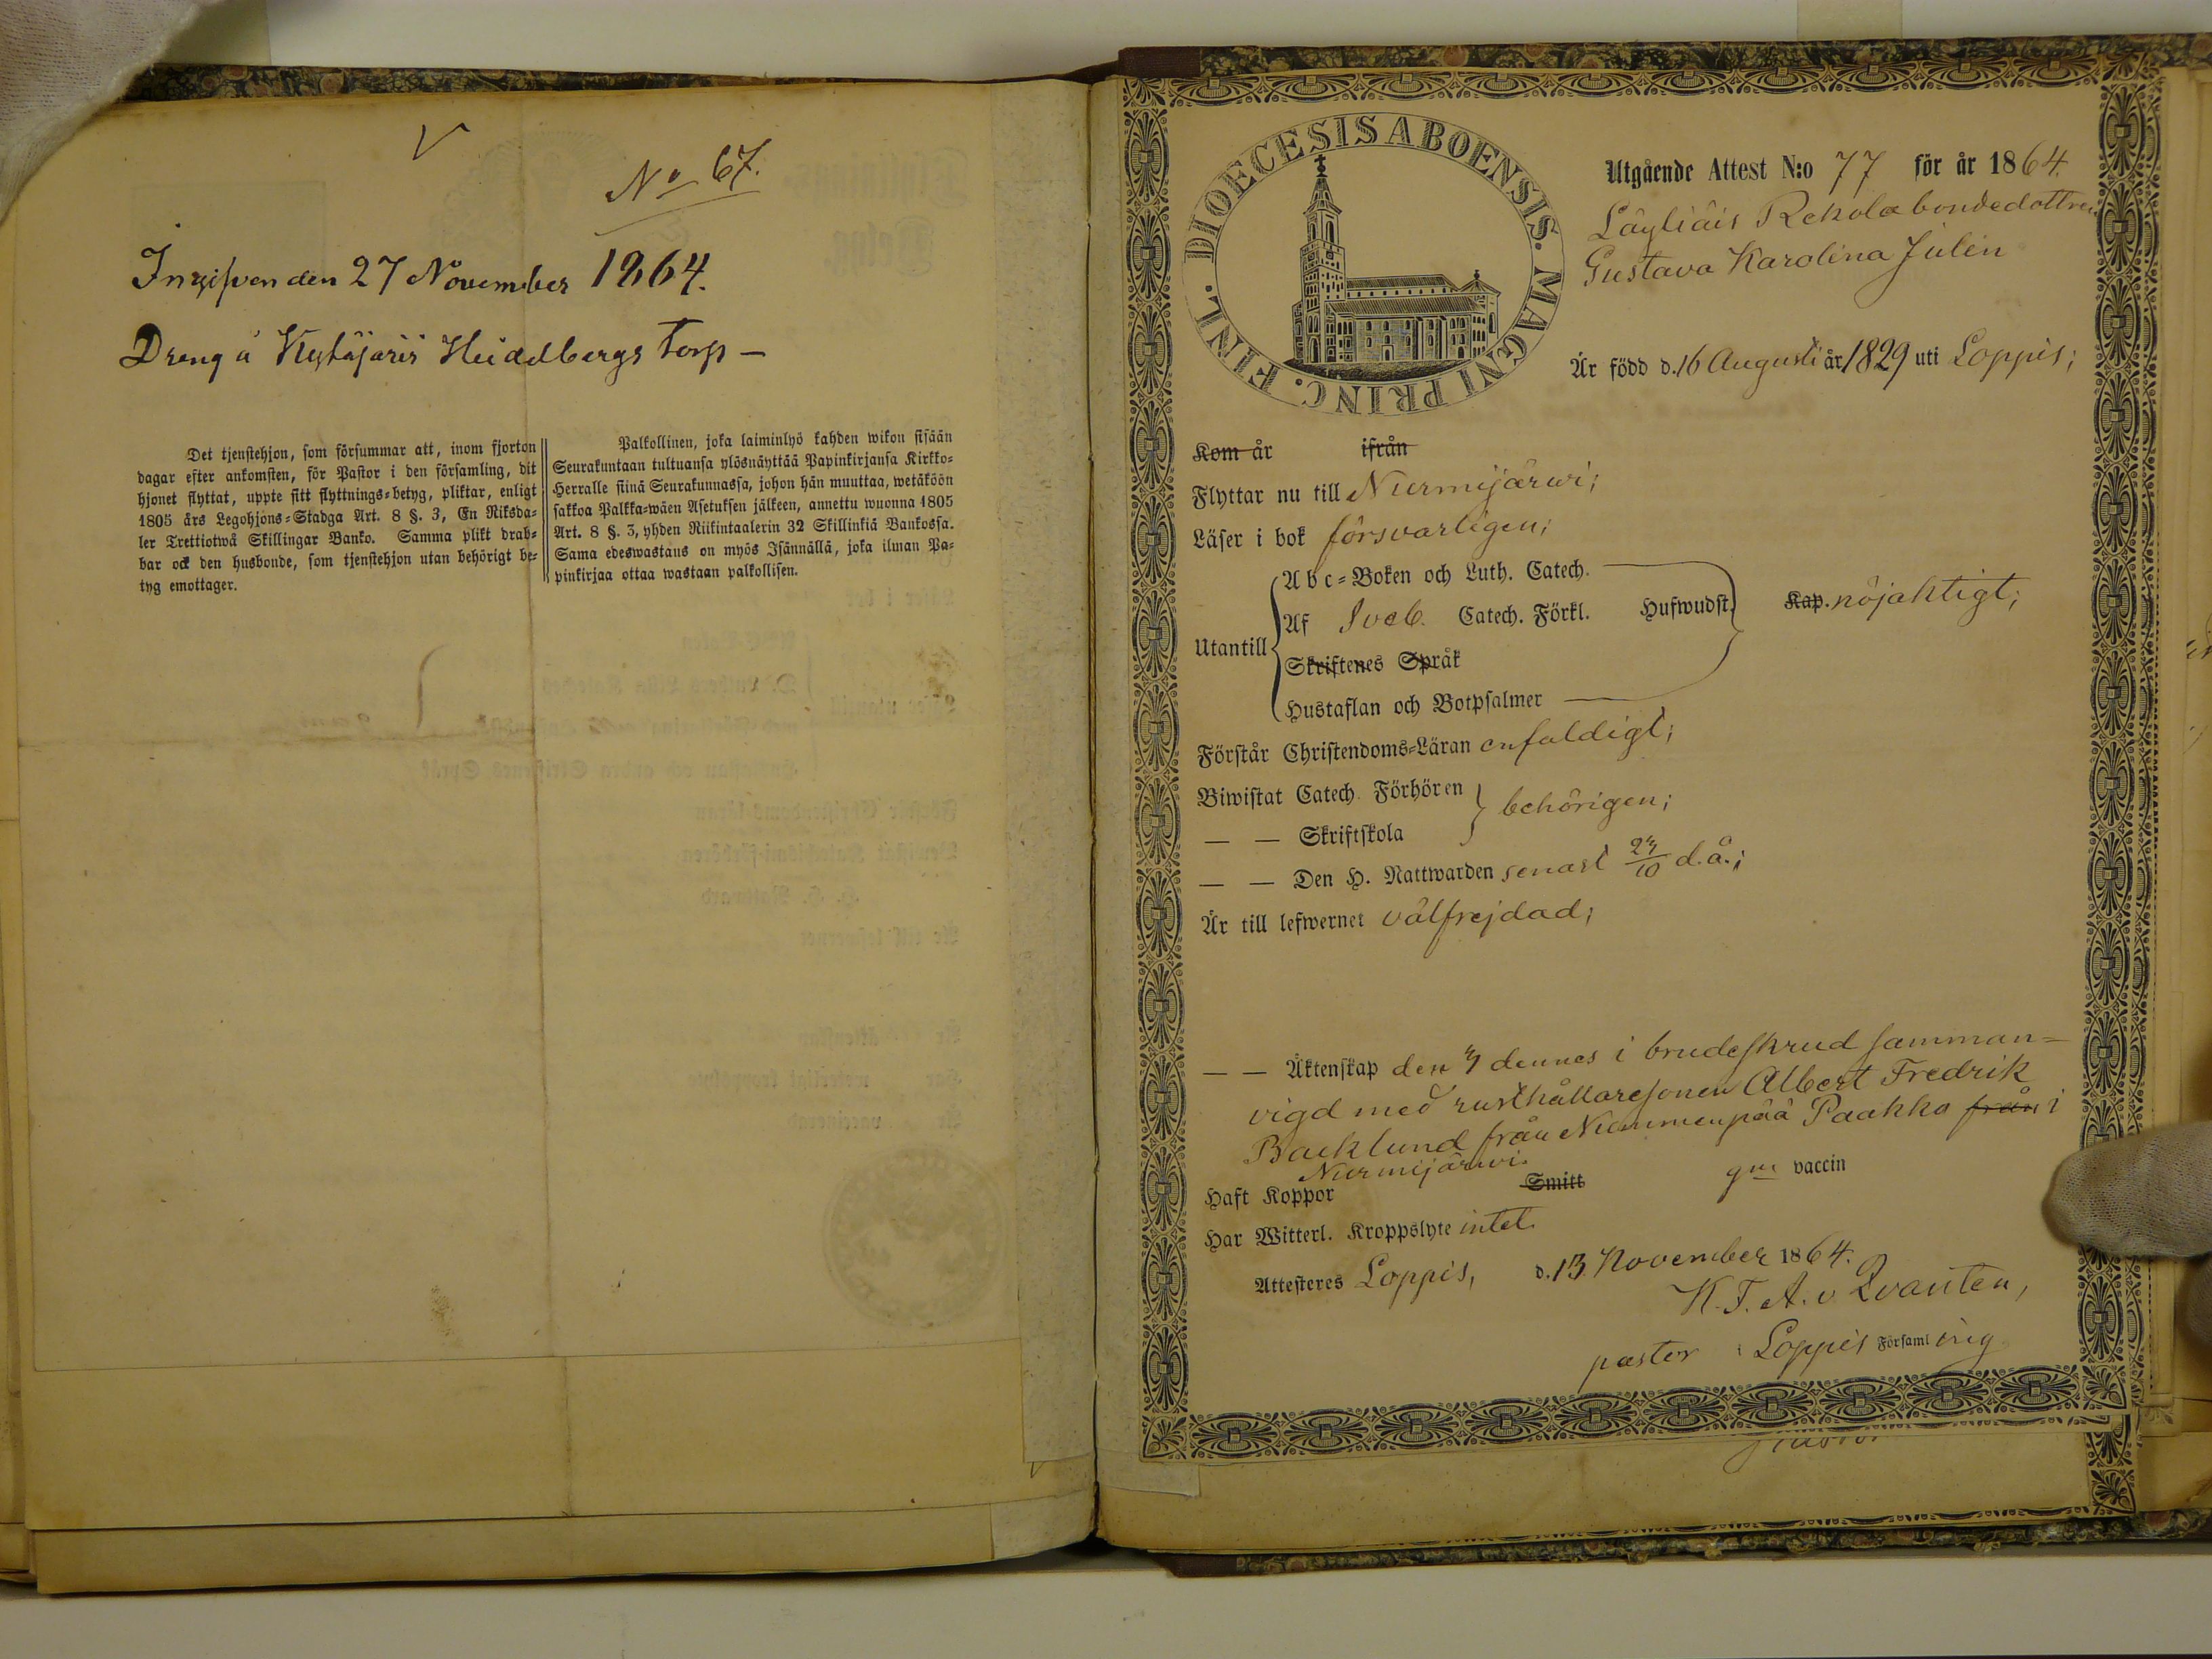 No 67.
Ingifven den 27 November 1864.
Dreng á Kytäjäris Heidelbergs Torp –
Det tjenstehjon, som försummar att, inom fjorton
dagar efter ankomsten, för Pastor i den församling, dit
hjonet flyttat, uppte sitt flyttnings=betyg, pliktar, enligt
1805 års Legohjons=Stadga Art. 8 §. 3, En Riksda=
ler Trettiotwå Skillingar Banko. Samma plikt drab=
bar ock den husbonde, som tjenstehjon utan behörigt be=
tyg emottager.
Palkollinen, joka laiminlyö kahden wikon sisään
Seurakuntaan tultuansa ylösnäyttää Papinkirjansa Kirkko=
Herralle siinä Seurakunnassa, johon hän muuttaa, wetäköön
sakkoa Palkka=wäen Asetuksen jälkeen, annettu wuonna 1805
Art. 8 §. 3, yhden Riikintaalerin 32 Skillinkiä Bankossa.
Sama edeswastaus on myös Isännällä, joka ilman Pa=
pinkirjaa ottaa wastaan palkollisen.
DIOECESIS ABOENSIS. MAGNI PRINC. FINL.
Utgående Attest N:o 77 för år 1864.
Läyliäis Rekola bondedottren
Gustava Karolina Julin
Är född d. 16 Augusti år 1829 uti Loppis;
Kom år ifrån
Flyttar nu till Nurmijärwi;
Läser i bok försvarligen;
Utantill
Abc=Boken och Luth. Catech.
Af Sveb. Catech. Förkl. Hufwudst. Kap. nöjaktigt;
Skriftenes Språk
Hustaflan och Botpsalmer
Förstår Christendoms=Läran enfaldigt;
Biwistat Catech. Förhören
— — Skriftskola behörigen;
— — Den H. Nattwarden senast 23/10 d.å.;
Är till lefwernet välfrejdad;
— — Äktenskap den dennes i brudeskrud samman=
vigd med rusthållaresonen Albert Fredrik
Backlund från Nummenpää Paakka från i
Nurmijärwi.
Haft Koppor Smitt gm vaccin
Har Witterl. Kroppslyte intet.
Attesteres Loppis, d. 13 November 1864.
K. F. A. v Qvanten,
pastor i Loppis Församling